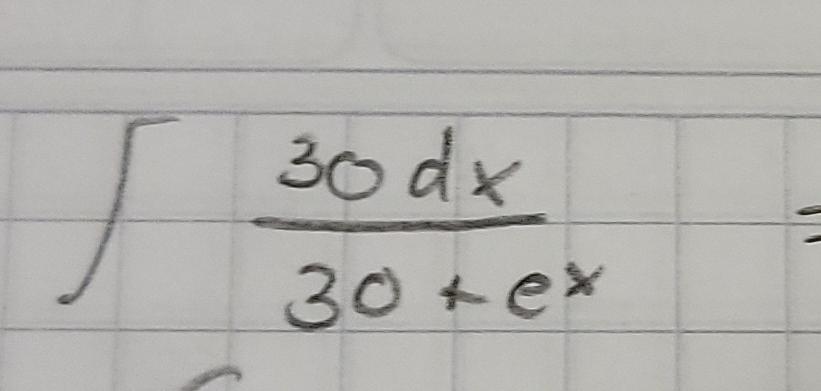 ∫ 30 dx / 30 + eˣ =